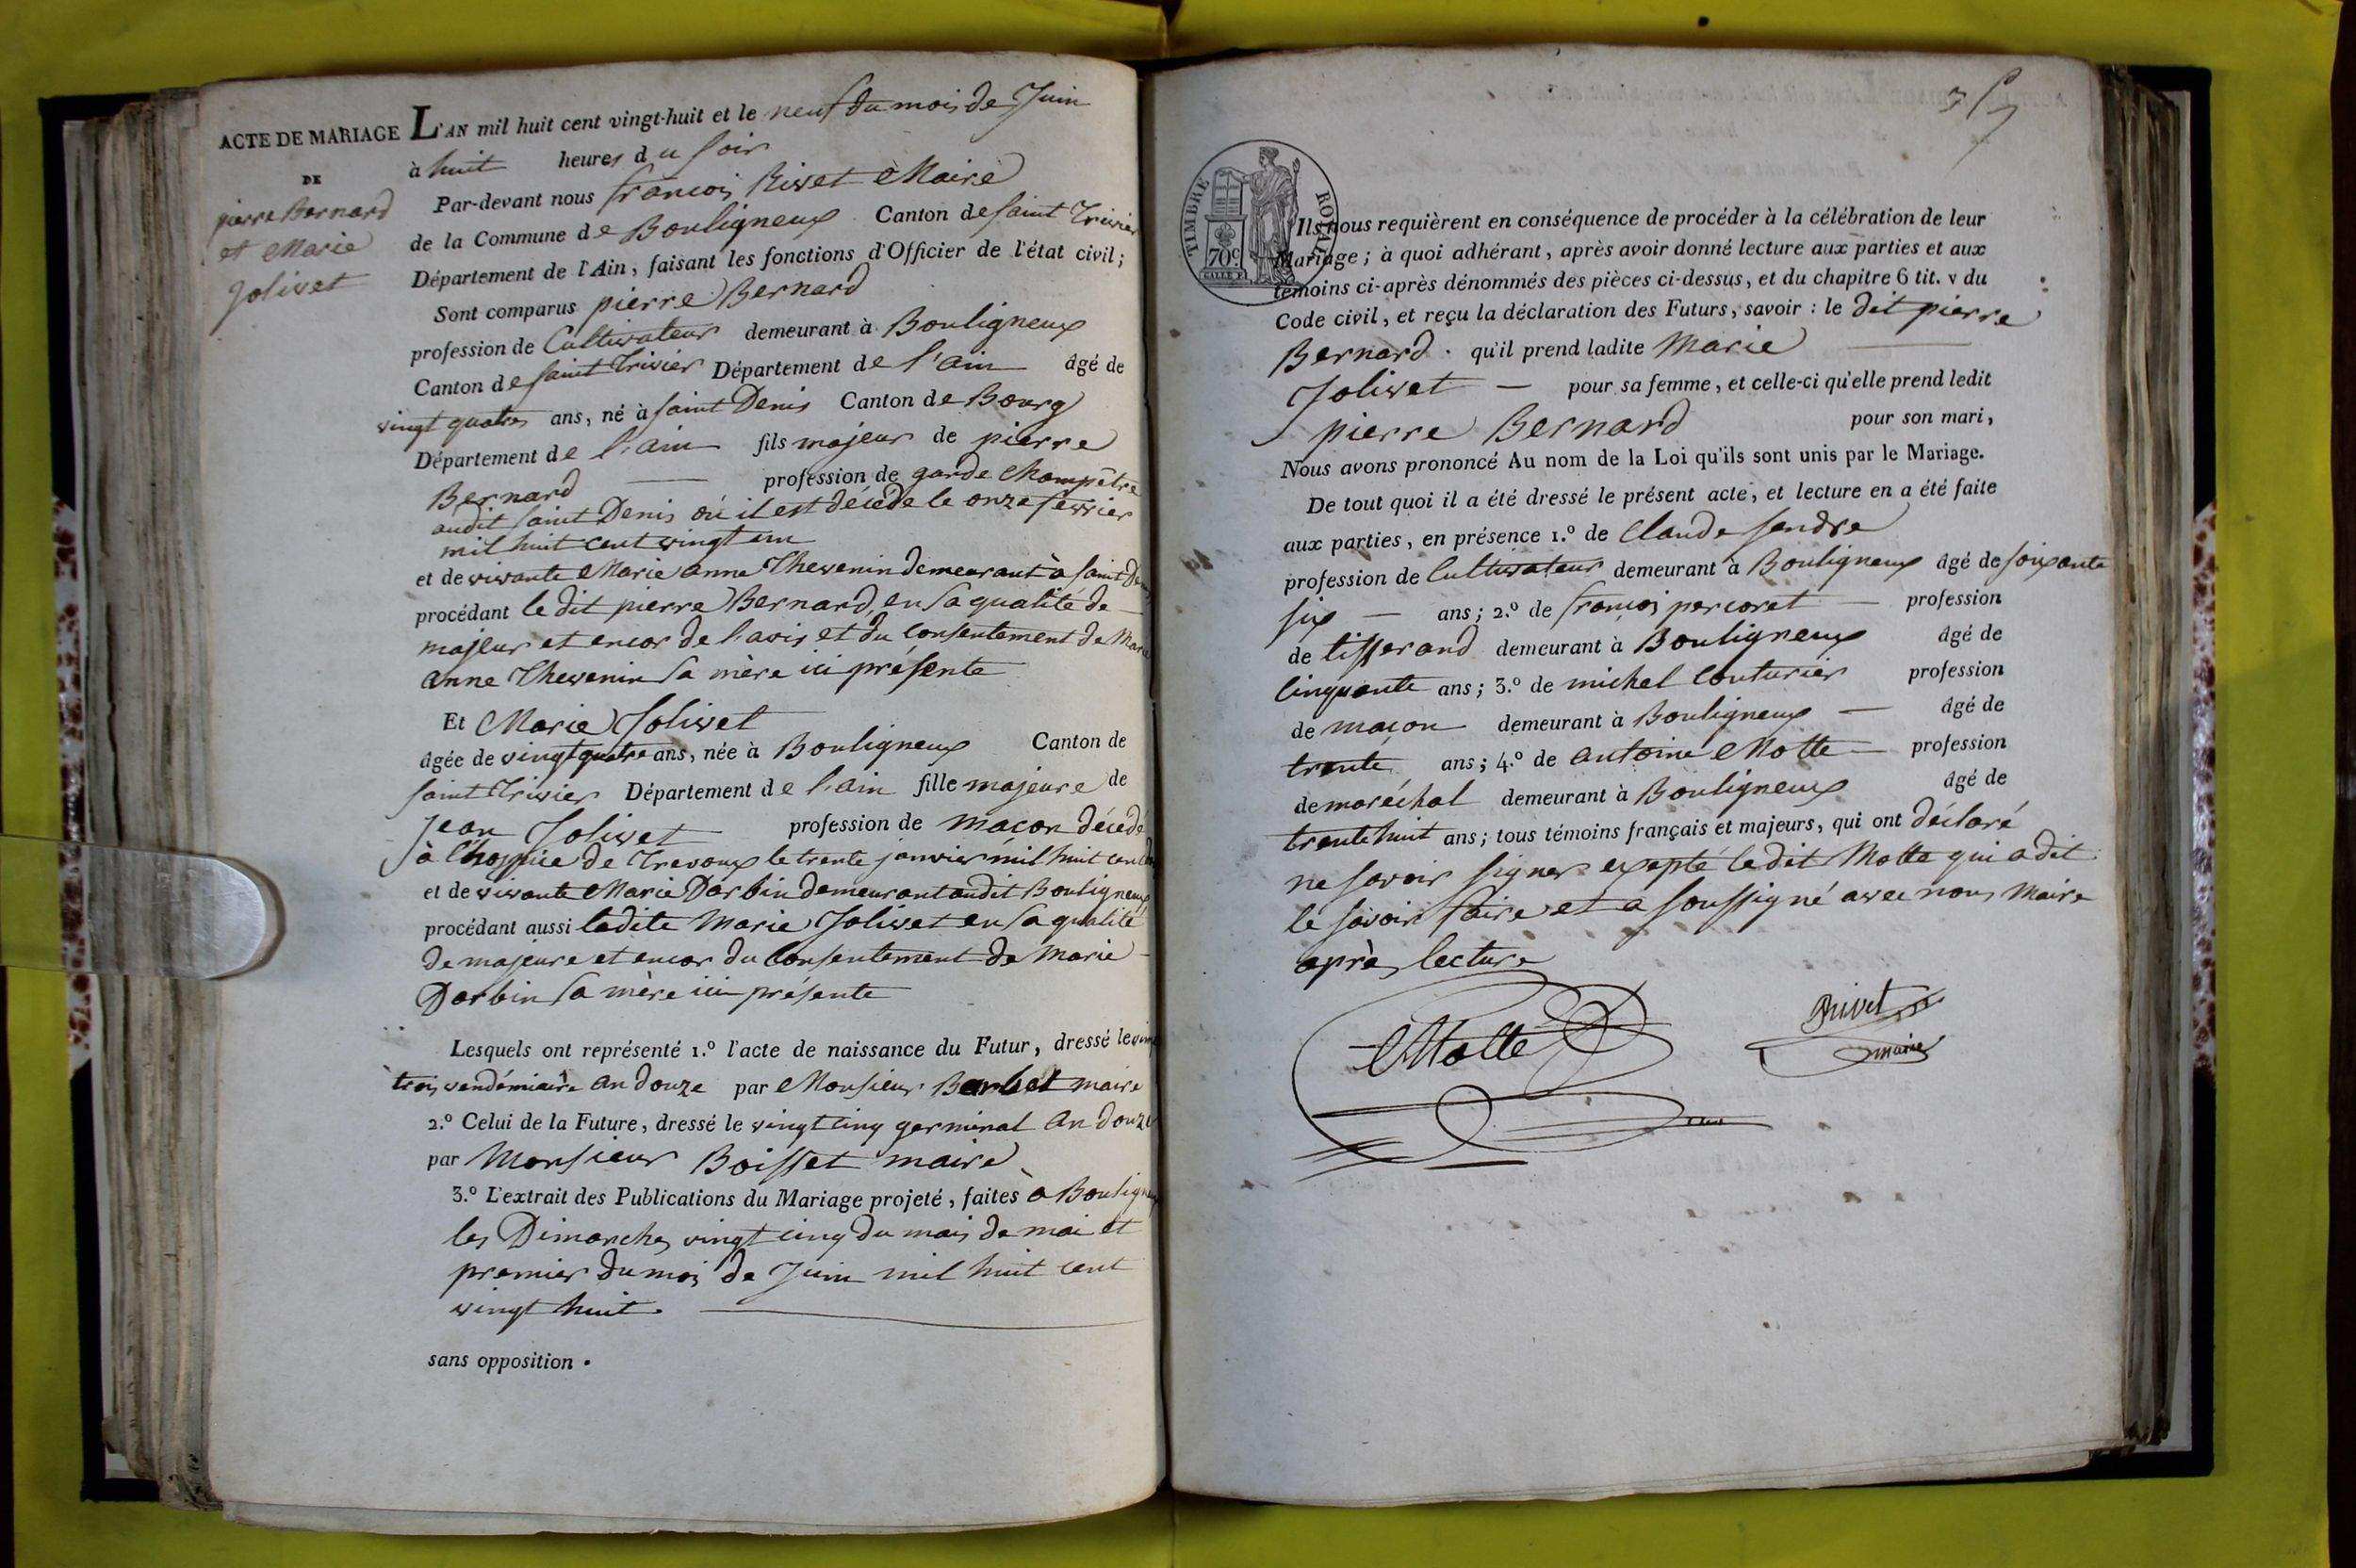 ACTE DE MARIAGE
DE
pierre Bernard
et Marie
Jolivet
L'AN mil huit cent vingt-huit et le neuf du mois de Juin
à huit heures du soir
Par-devant nous françois Rivet Maire
de la Commune de Bouligneux Canton de saint Trivier
Département de l'Ain, faisant les fonctions d'Officier de l'état civil;
Sont comparus pierre Bernard
profession de Cultivateur demeurant à Bouligneux
Canton de saint Trivier Département de l'ain âgé de
vingt quatre ans, né à saint Denis Canton de Bourg
Département de l'ain fils majeur de pierre
Bernard profession de garde Champêtre
audit saint Denis où il est décédé le onze fevrier
mil huit cent vingt un
et de vivante Marie anne Thevenin demeurant à saint Denis
procédant le dit pierre Bernard, en sa qualité de
majeur et encor de l'avis et du Consentement de Marie
anne Thevenin sa mère ici présente
Et Marie Jolivet
âgée de vingt quatre ans, née à Bouligneux Canton de
saint Trivier Département de l'ain fille majeure de
Jean Jolivet profession de maçon décédé
à l'hospice de Trevoux le trente janvier mil huit cent
et de vivante Marie Darbin demeurant audit Bouligneux
procédant aussi ladite Marie Jolivet en sa qualité
de majeure et encor du Consentement de Marie
Darbin sa mère ici présente
Lesquels ont représenté 1.º l'acte de naissance du Futur, dressé le vingt
trois vendémiaire an douze par Monsieur Barbet maire
2.º Celui de la Future, dressé le vingt cinq germinal an douze
par Monsieur Boisset maire
3.º L'extrait des Publications du Mariage projeté, faites à Bouligneux
les Dimanches vingt cinq du mois de mai et
premier du mois de Juin mil huit cent
vingt huit.
sans opposition.
TIMBRE ROYAL
70c
Ils nous requièrent en conséquence de procéder à la célébration de leur
Mariage; à quoi adhérant, après avoir donné lecture aux parties et aux
témoins ci-après dénommés des pièces ci-dessus, et du chapitre 6 tit. v du
Code civil, et reçu la déclaration des Futurs, savoir : le dit pierre
Bernard. qu'il prend ladite Marie
Jolivet — pour sa femme, et celle-ci qu'elle prend ledit
pierre Bernard pour son mari,
Nous avons prononcé Au nom de la Loi qu'ils sont unis par le Mariage.
De tout quoi il a été dressé le présent acte, et lecture en a été faite
aux parties, en présence 1.º de Claude sandre
profession de Cultivateur demeurant à Bouligneux âgé de soixante
six — ans; 2.º de françois percoret — profession
de tisserand demeurant à Bouligneux âgé de
Cinquante ans; 3.º de michel Couturier profession
de maçon demeurant à Bouligneux — âgé de
trente ans; 4.º de antoine Motte — profession
de maréchal demeurant à Bouligneux âgé de
trente huit ans; tous témoins français et majeurs, qui ont déclaré
ne savoir signer excepté ledit Motte qui a dit
le savoir faire et a soussigné avec nous Maire
après lecture
Motte
Rivet
maire